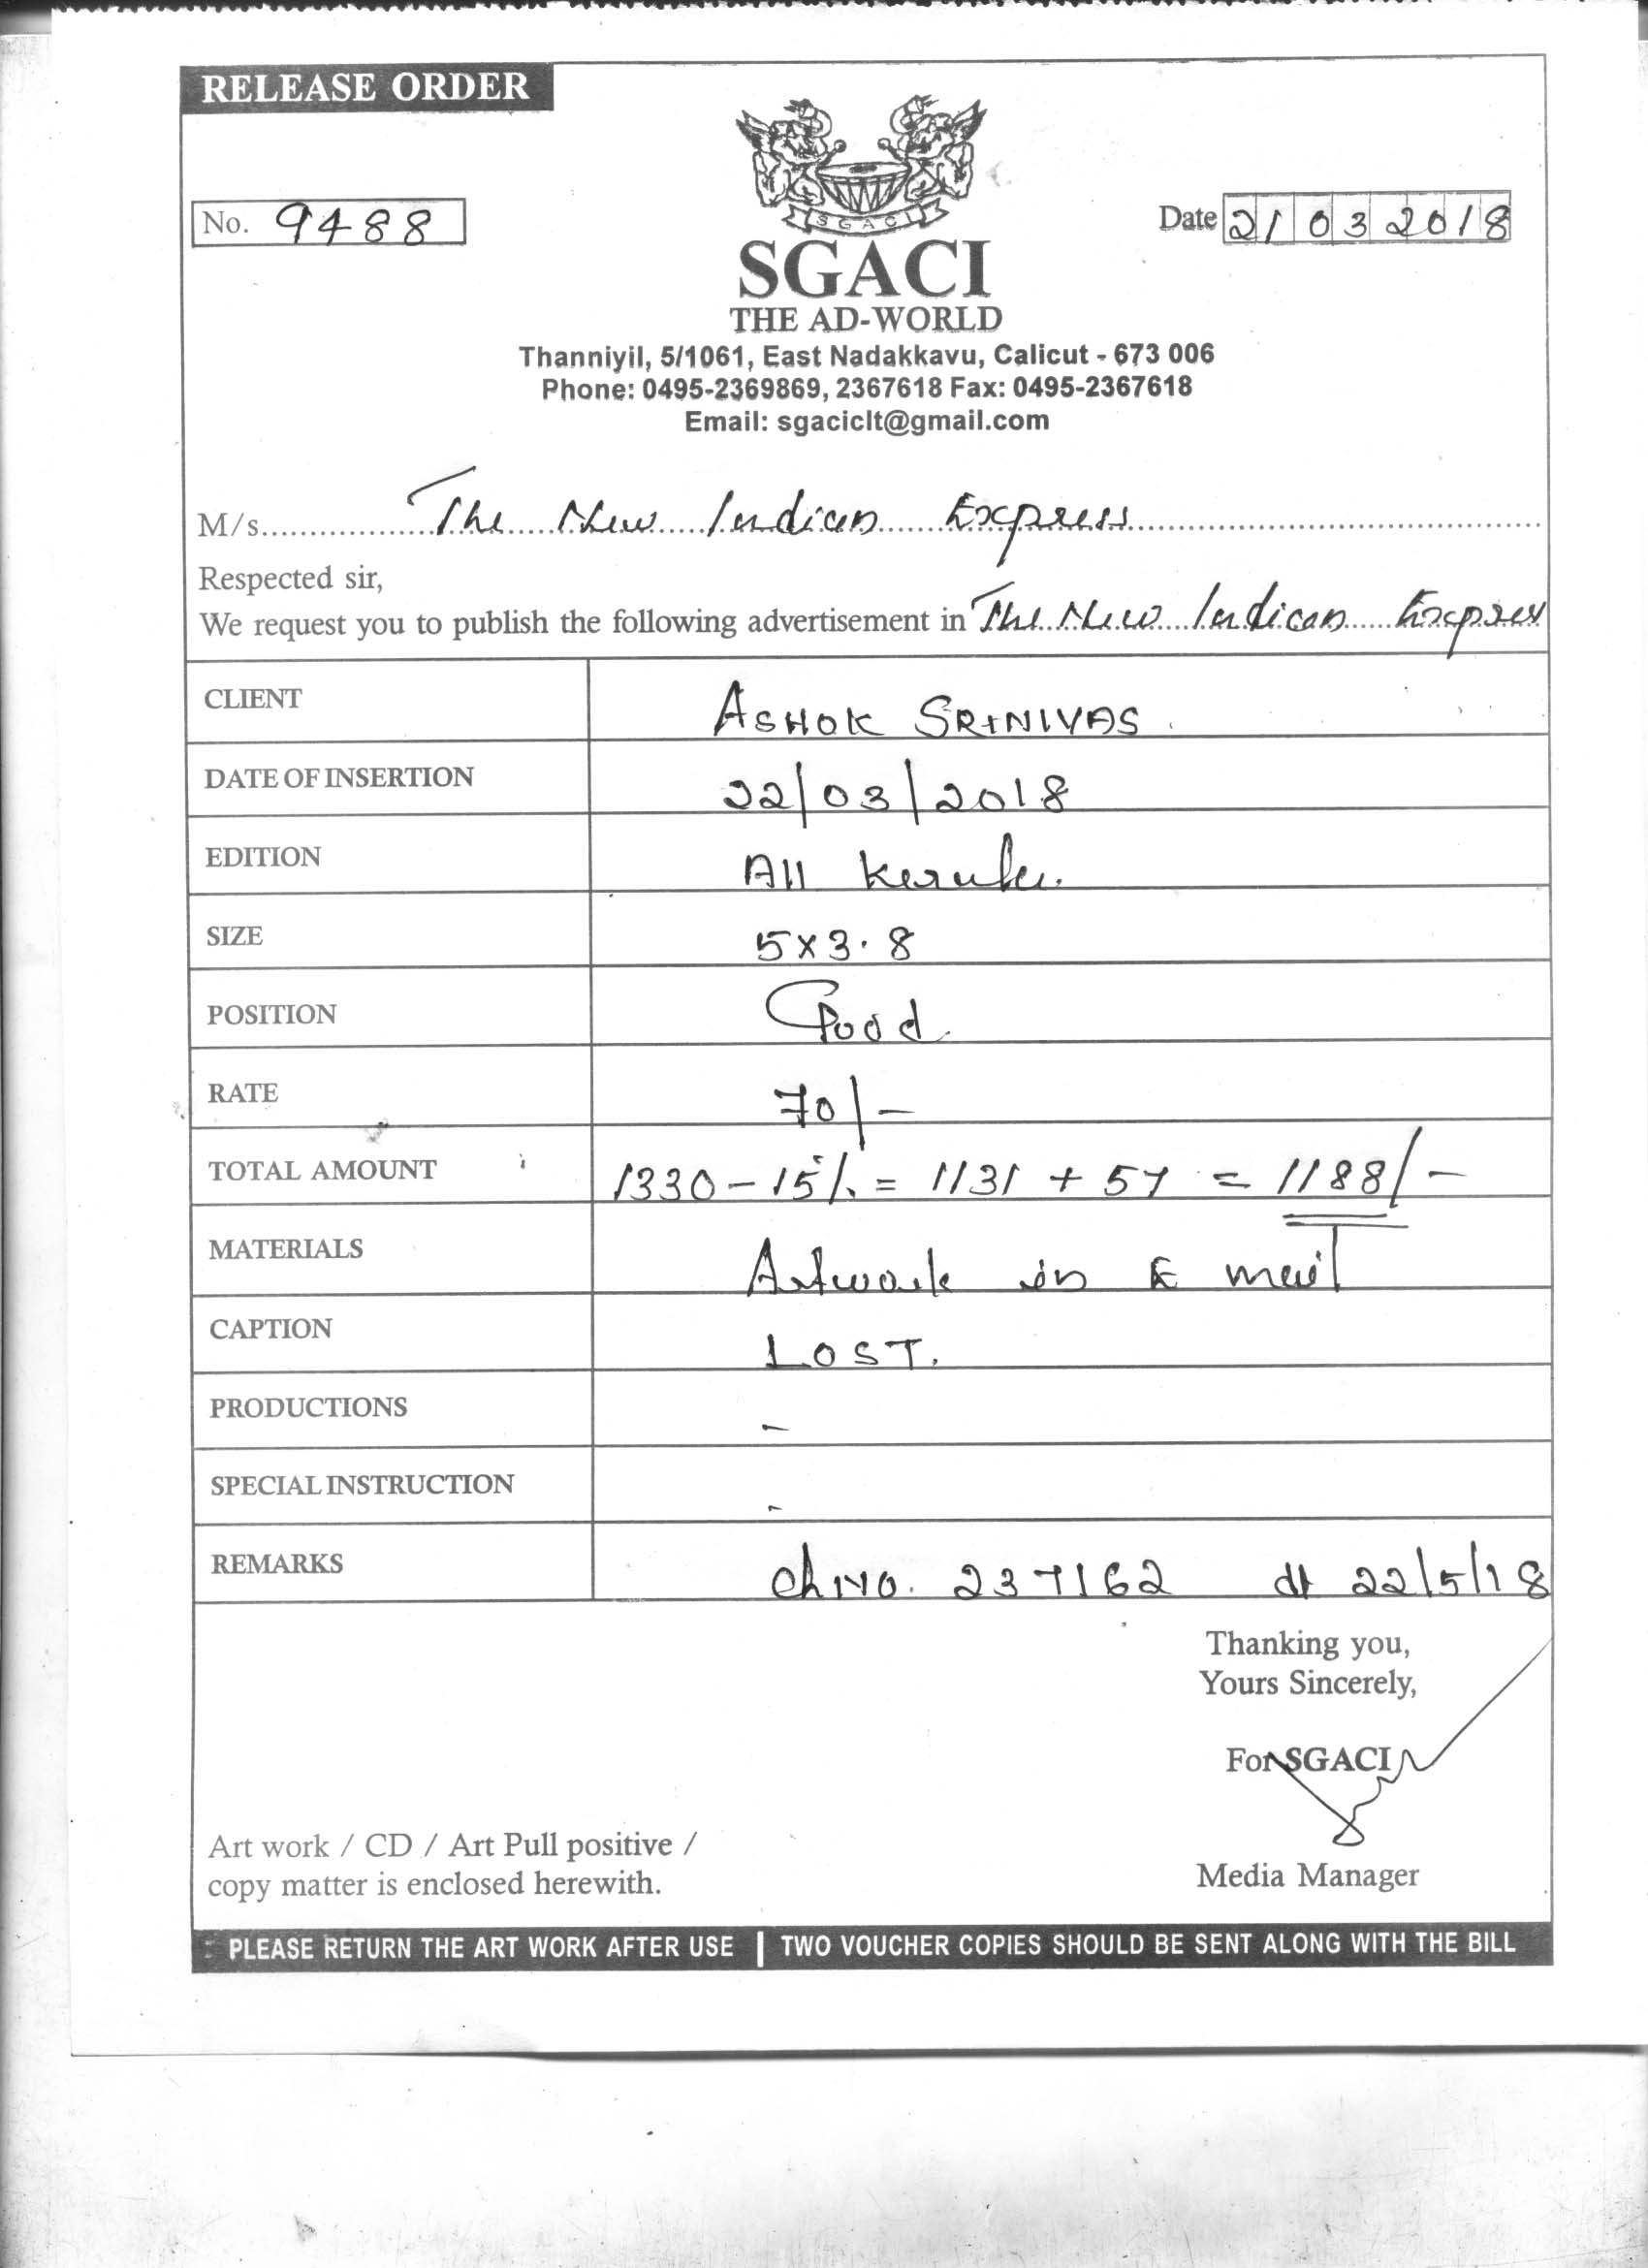 RELEASE ORDER
No. 9488
Date 21 03 2018
SGACI
SGACI
THE AD-WORLD
Thanniyil, 5/1061, East Nadakkavu, Calicut - 673 006
Phone: 0495-2369869, 2367618 Fax: 0495-2367618
Email: sgaciclt@gmail.com
M/s. The New Indian Express
Respected sir,
We request you to publish the following advertisement in The New Indian Express
CLIENT ASHOK SRINIVAS.
DATE OF INSERTION 22/03/2018
EDITION All Kerala.
SIZE 5x3.8
POSITION Good
RATE 70/-
TOTAL AMOUNT 1330-15%=1131+57=1188/-
MATERIALS Artwork in E mail
CAPTION LOST.
PRODUCTIONS -
SPECIAL INSTRUCTION -
REMARKS Ch No. 237162 dt 22/5/18
Thanking you,
Yours Sincerely,
For SGACI
Art work / CD / Art Pull positive /
copy matter is enclosed herewith.
Media Manager
PLEASE RETURN THE ART WORK AFTER USE | TWO VOUCHER COPIES SHOULD BE SENT ALONG WITH THE BILL